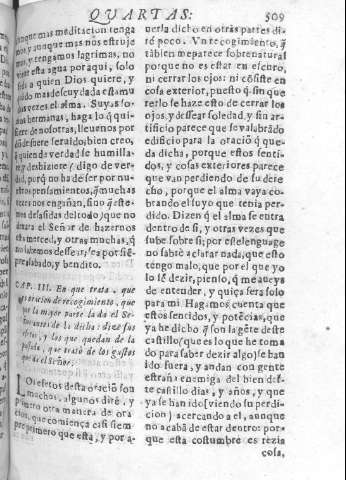 QUARTAS: 509
que mas meditacion tenga
y aunque mas nos estruje
y tengamos lagrimas, no
esta agua por aqui, solo
a quien Dios quiere, y
mas descuydada esta mu
vezes el alma. Suyas so
hermanas, haga lo q̃ qui
de nosotras, lleuenos por
dõ fuere seruido, bien creo,
q̃ quien de verdad se humilla
y deshiziere (digo de ver
porq̃ no ha de ser por nu
pensamientos, q̃ muchas
vezes nos engañan, sino q̃ este
desasidas del todo) que no
el Señor de hazernos
esta merced, y otras muchas, q̃
no sabemos dessear, sea por siẽ
alabado, y bendito.
CAP. III. En que trata, que
oracion de recogimiento, que
por la mayor parte la da el Se
de la dicha: dize sus
y los que quedan de la
passada, que trató de los gustos
que da el Señor.
LOs efetos desta oraciõ son
muchos, algunos diré, y
primero otra manera de ora
cion, que comiença casi siem
pre primero que esta, y por a-
uerla dicho en otras partes di-
ré poco. Vn recogimiento, q̃
tãbien me parece sobrenatural
porque no es estar en escuro,
ni cerrar los ojos: ni cõsiste en
cosa exterior, puesto q̃ sin que
rerlo se haze esto de cerrar los
ojos, y dessear soledad, y sin ar-
tificio parece que se va labrãdo
edificio para la oraciõ q̃ que-
da dicha, porque estos senti-
dos, y cosas exteriores parece
que van perdiendo de su dere
cho, porque el alma vaya co-
brando el suyo que tenia per-
dido. Dizen q̃ el alma se entra
dentro de si, y otras vezes que
sube sobre si; por este lenguage
no sabré aclarar nada, que esto
tengo malo, que por el que yo
lo sé dezir, pienso, q̃ me aueys
de entender, y quiça sera solo
para mi. Hagamos cuenta que
estos sentidos, y potẽcias, que
ya he dicho q̃ son la gẽte deste
castillo (que es lo que he toma
do para saber dezir algo) se han
ido fuera, y andan con gente
estraña enemiga del bien des-
te castillo dias, y años, y que
ya se han ido (viendo su perdi-
cion) acercando a el, aunque
no acabã de estar dentro: por-
que esta costumbre es rezia
cosa,